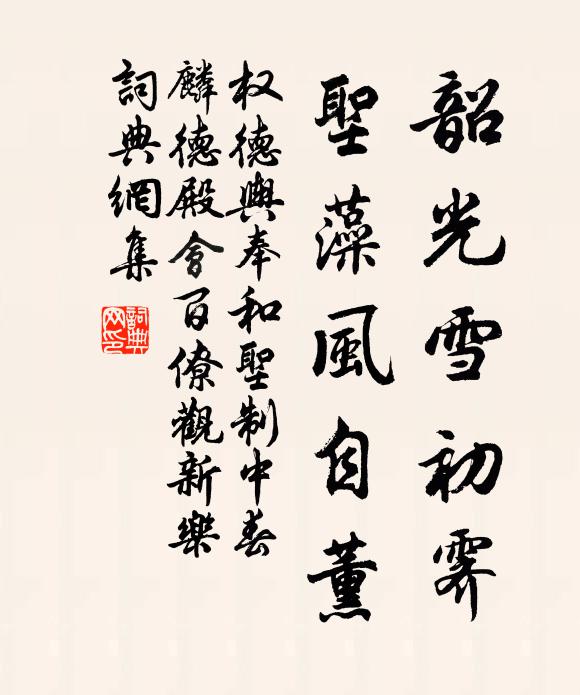 韶光雪初霽
聖藻風自薰
权德輿奉和聖制中春
麟德殿會百僚觀新樂
詞典網集
詞典网印